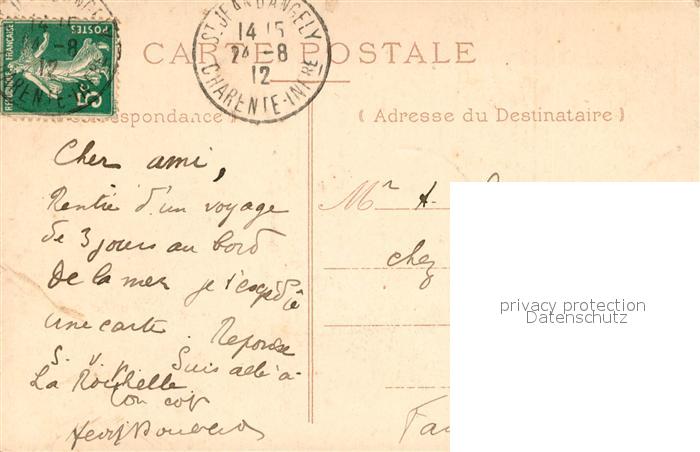 POSTES
REPUBLIQUE FRANÇAISE
5c
14 15
-8
12
ST JEAN D'ANGELY
14 15
24 -8
12
CHARENTE-INFRE
CARTE POSTALE
Correspondance )
( Adresse du Destinataire )
Cher ami,
Rentré d'un voyage
de 3 jours au bord
De la mer je t'expédie
une carte. Reponse
S. V. P. Suis allé à
La Rochelle
Ton cop
Mr A.
chez
privacy protection
Datenschutz